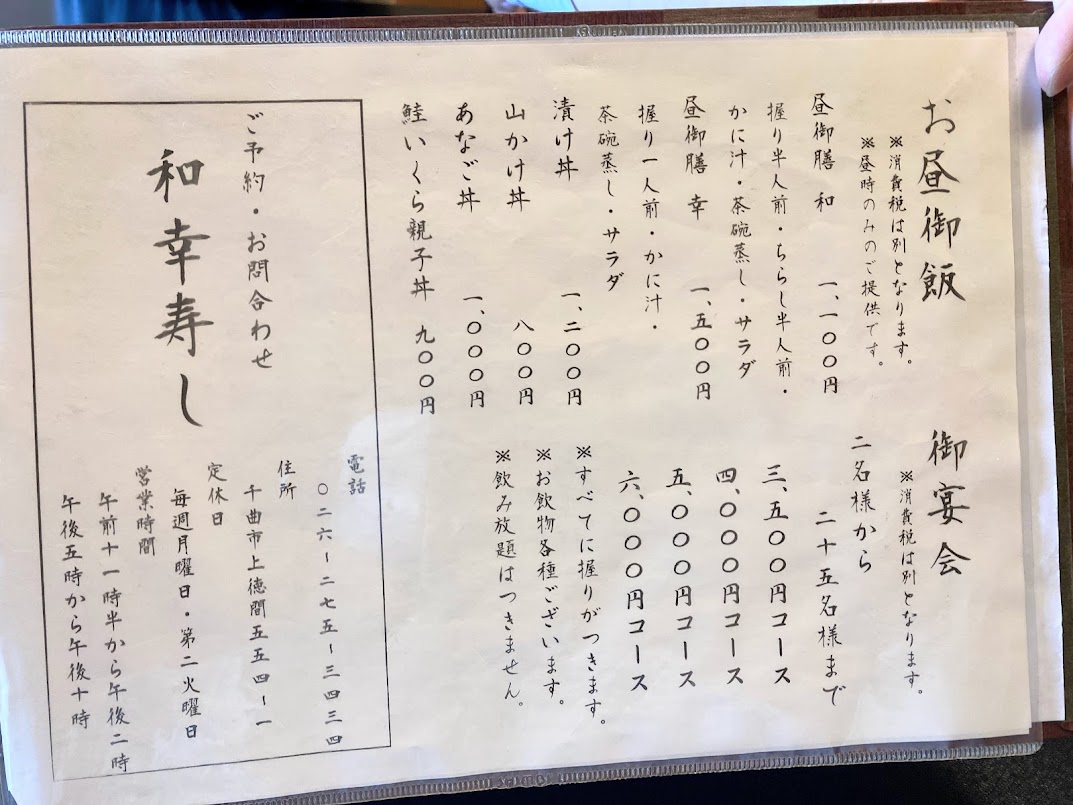 お昼御飯
※消費税は別となります。
※昼時のみのご提供です。
昼御膳 和 一、一〇〇円
握り半人前・ちらし半人前・
かに汁・茶碗蒸し・サラダ
昼御膳 幸 一、五〇〇円
握り一人前・かに汁・
茶碗蒸し・サラダ
漬け丼 一、二〇〇円
山かけ丼 八〇〇円
あなご丼 一、〇〇〇円
鮭いくら親子丼 九〇〇円
御宴会
※消費税は別となります。
二名様から 二十五名様まで
三、五〇〇円コース
四、〇〇〇円コース
五、〇〇〇円コース
六、〇〇〇円コース
※すべてに握りがつきます。
※お飲物各種ございます。
※飲み放題はつきません。
ご予約・お問合わせ
和幸寿し
電話
〇二六ー二七五ー三四三四
住所
千曲市上徳間五五四ー一
定休日
毎週月曜日・第二火曜日
営業時間
午前十一時半から午後二時
午後五時から午後十時